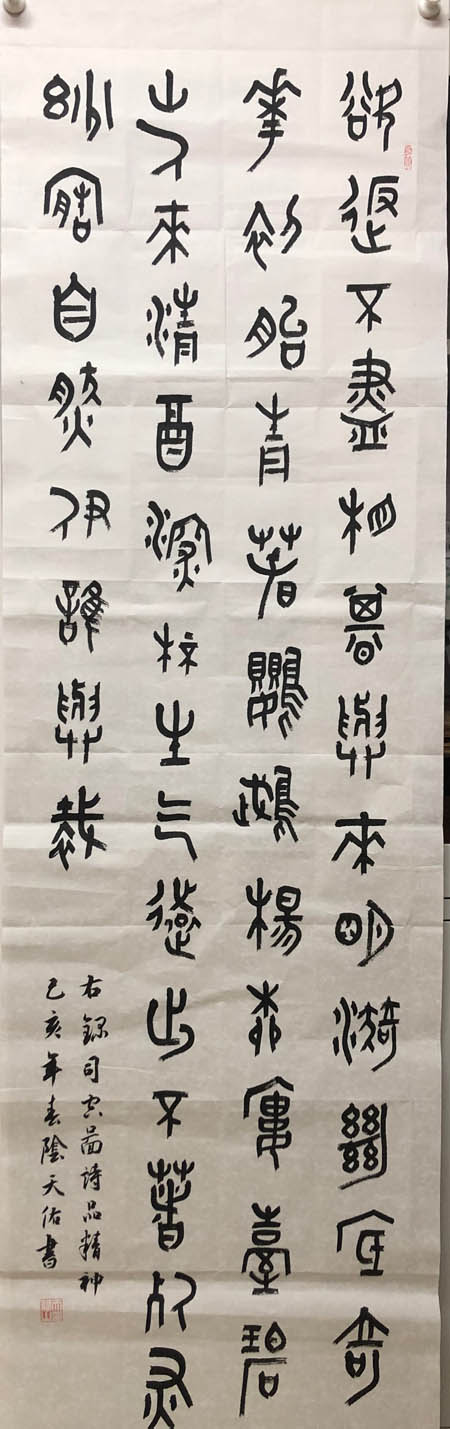 欲返不盡相期與來明漪絕底奇
華初胎青春鸚鵡楊柳樓臺碧
山人來清酉深杯生气遠出不著死灰
妙造自然伊誰與裁
右錄司空圖詩品精神
己亥年春陰天佑書